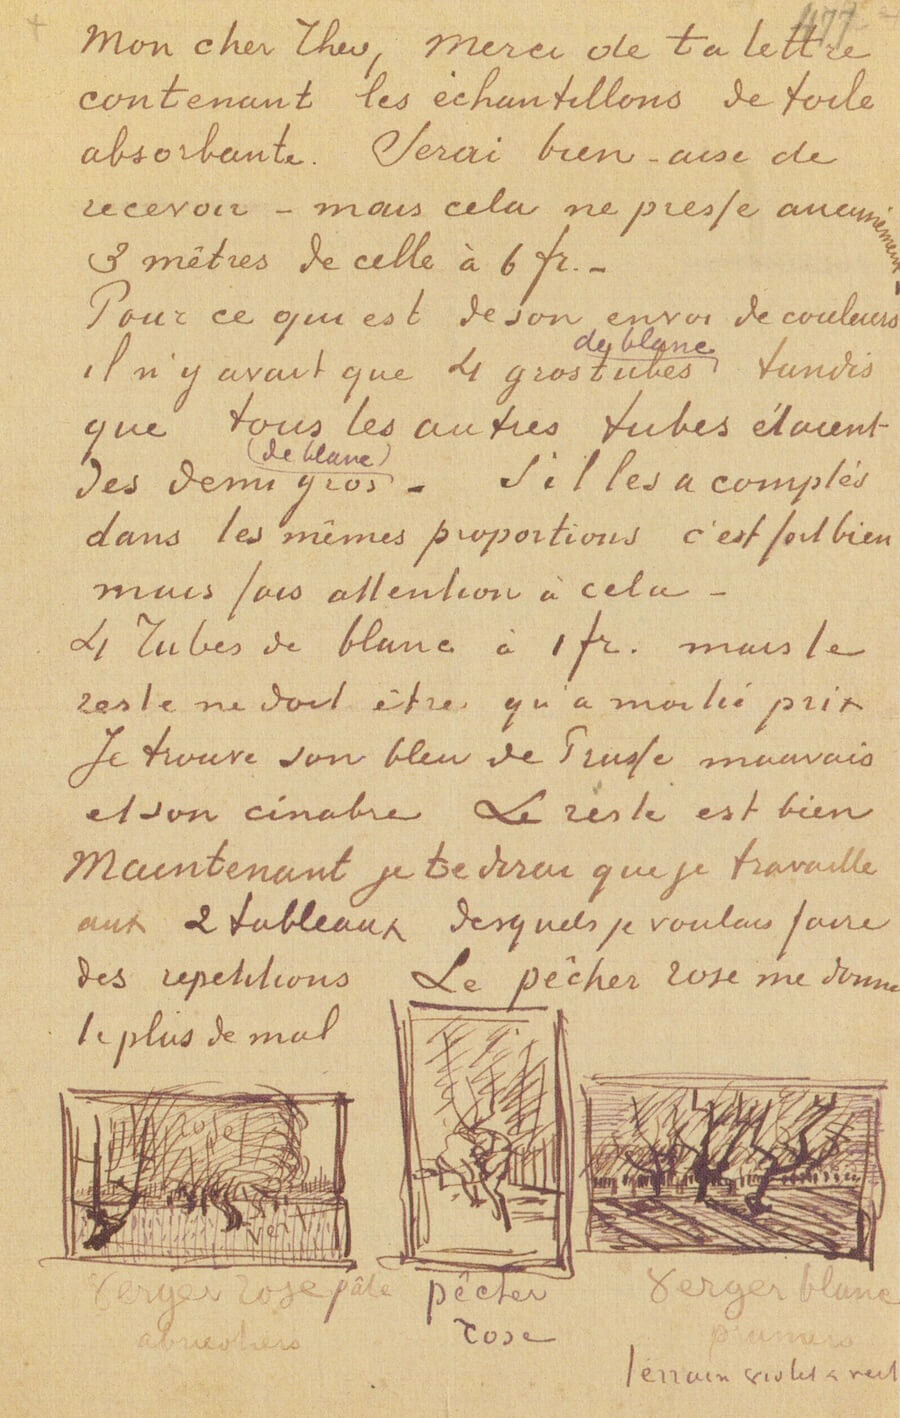 477
Mon cher Theo, Merci de ta lettre
contenant les échantillons de toile
absorbante. Serai bien-aise de
recevoir – mais cela ne presse aucunement
3 mètres de celle à 6 fr. –
Pour ce qui est de son envoi de couleurs
de blanc
il n'y avait que 4 gros tubes tandis
que tous les autres tubes étaient
(de blanc)
des demi gros – S'il les a comptés
dans les mêmes proportions c'est fort bien
mais fais attention à cela –
4 Tubes de blanc à 1 fr. mais le
reste ne doit être qu'a moitié prix
Je trouve son bleu de Prusse mauvais
et son cinabre Le reste est bien
Maintenant je te dirai que je travaille
aux 2 tableaux desquels je voulais faire
des repetitions Le pêcher rose me donne
le plus de mal
rose
vert
Verger rose pâle
abricotiers
pêcher
rose
Verger blanc
pruniers
terrain violet & vert